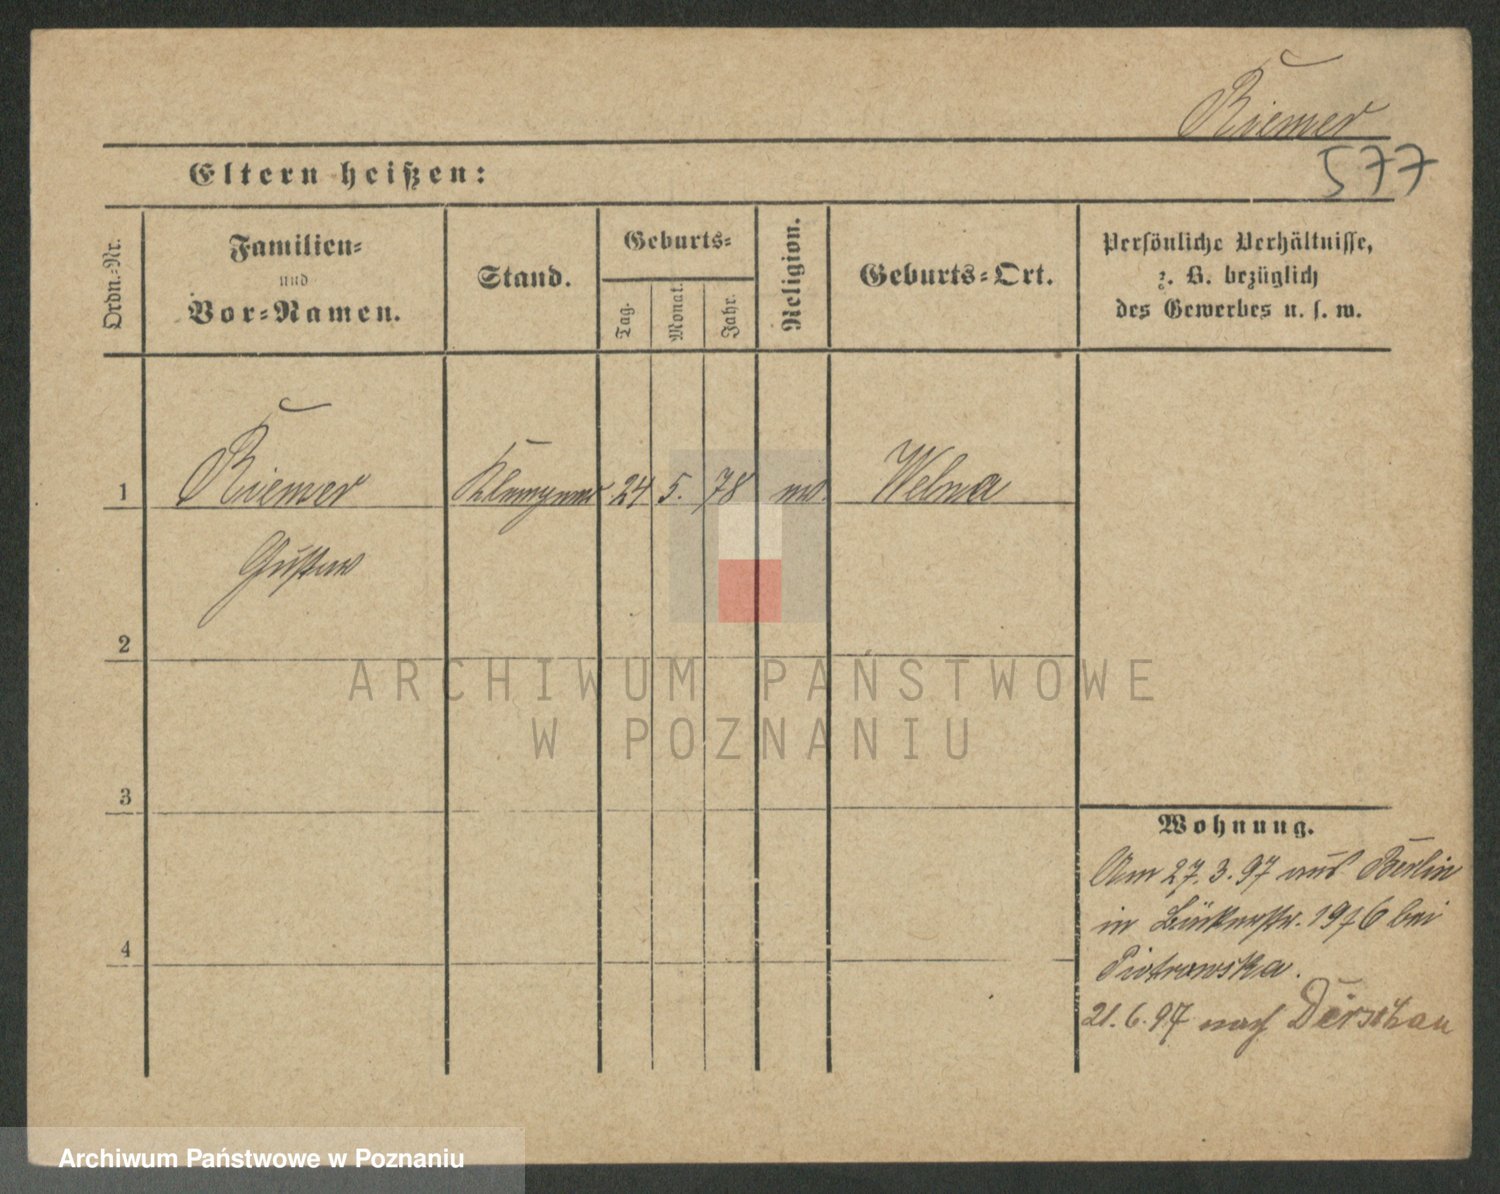 Riemer
577
Eltern heißen:
Ordn.-Nr.
Familien-
und
Vor-Namen.
Stand.
Geburts-
Tag.
Monat.
Jahr.
Religion.
Geburts-Ort.
Persönliche Verhältnisse,
z. B. bezüglich
des Gewerbes u. s. w.
1
Riemer
24
5.
78
Welna
Gustav
2
ARCHIWUM PAŃSTWOWE
W POZNANIU
3
4
Wohnung.
Am 27.3.97 aus Berlin
in bei
Piotrowska.
21.6.97 nach Dirschau
Archiwum Państwowe w Poznaniu